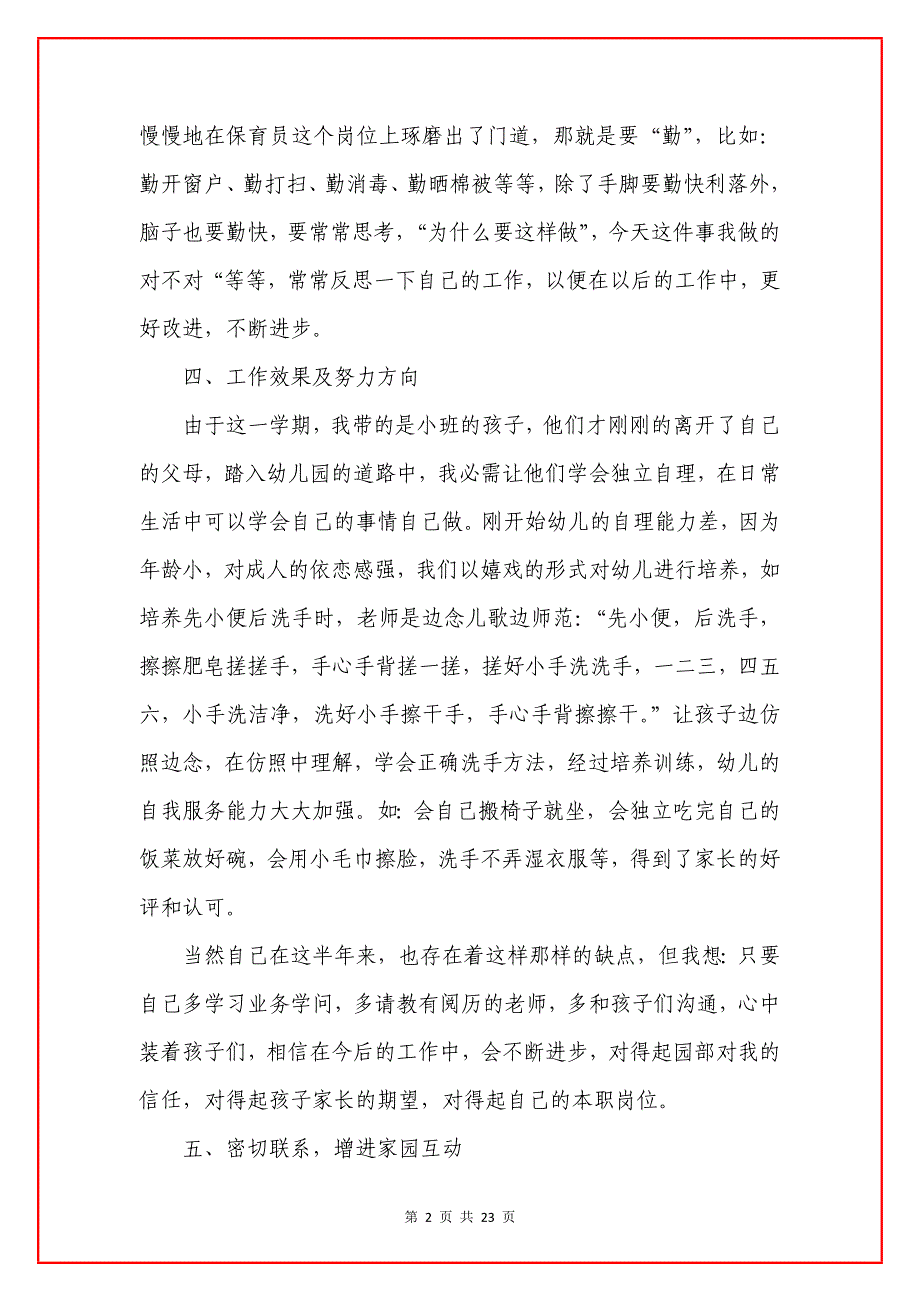 慢慢地在保育员这个岗位上琢磨出了门道，那就是要“勤”，比如：
勤开窗户、勤打扫、勤消毒、勤晒棉被等等，除了手脚要勤快利落外，
脑子也要勤快，要常常思考，“为什么要这样做”，今天这件事我做的
对不对“等等，常常反思一下自己的工作，以便在以后的工作中，更
好改进，不断进步。
四、工作效果及努力方向
由于这一学期，我带的是小班的孩子，他们才刚刚的离开了自己
的父母，踏入幼儿园的道路中，我必需让他们学会独立自理，在日常
生活中可以学会自己的事情自己做。刚开始幼儿的自理能力差，因为
年龄小，对成人的依恋感强，我们以嬉戏的形式对幼儿进行培养，如
培养先小便后洗手时，老师是边念儿歌边师范：“先小便，后洗手，
擦擦肥皂搓搓手，手心手背搓一搓，搓好小手洗洗手，一二三，四五
六，小手洗洁净，洗好小手擦干手，手心手背擦擦干。”让孩子边仿
照边念，在仿照中理解，学会正确洗手方法，经过培养训练，幼儿的
自我服务能力大大加强。如：会自己搬椅子就坐，会独立吃完自己的
饭菜放好碗，会用小毛巾擦脸，洗手不弄湿衣服等，得到了家长的好
评和认可。
当然自己在这半年来，也存在着这样那样的缺点，但我想：只要
自己多学习业务学问，多请教有阅历的老师，多和孩子们沟通，心中
装着孩子们，相信在今后的工作中，会不断进步，对得起园部对我的
信任，对得起孩子家长的期望，对得起自己的本职岗位。
五、密切联系，增进家园互动
第 2 页 共 23 页